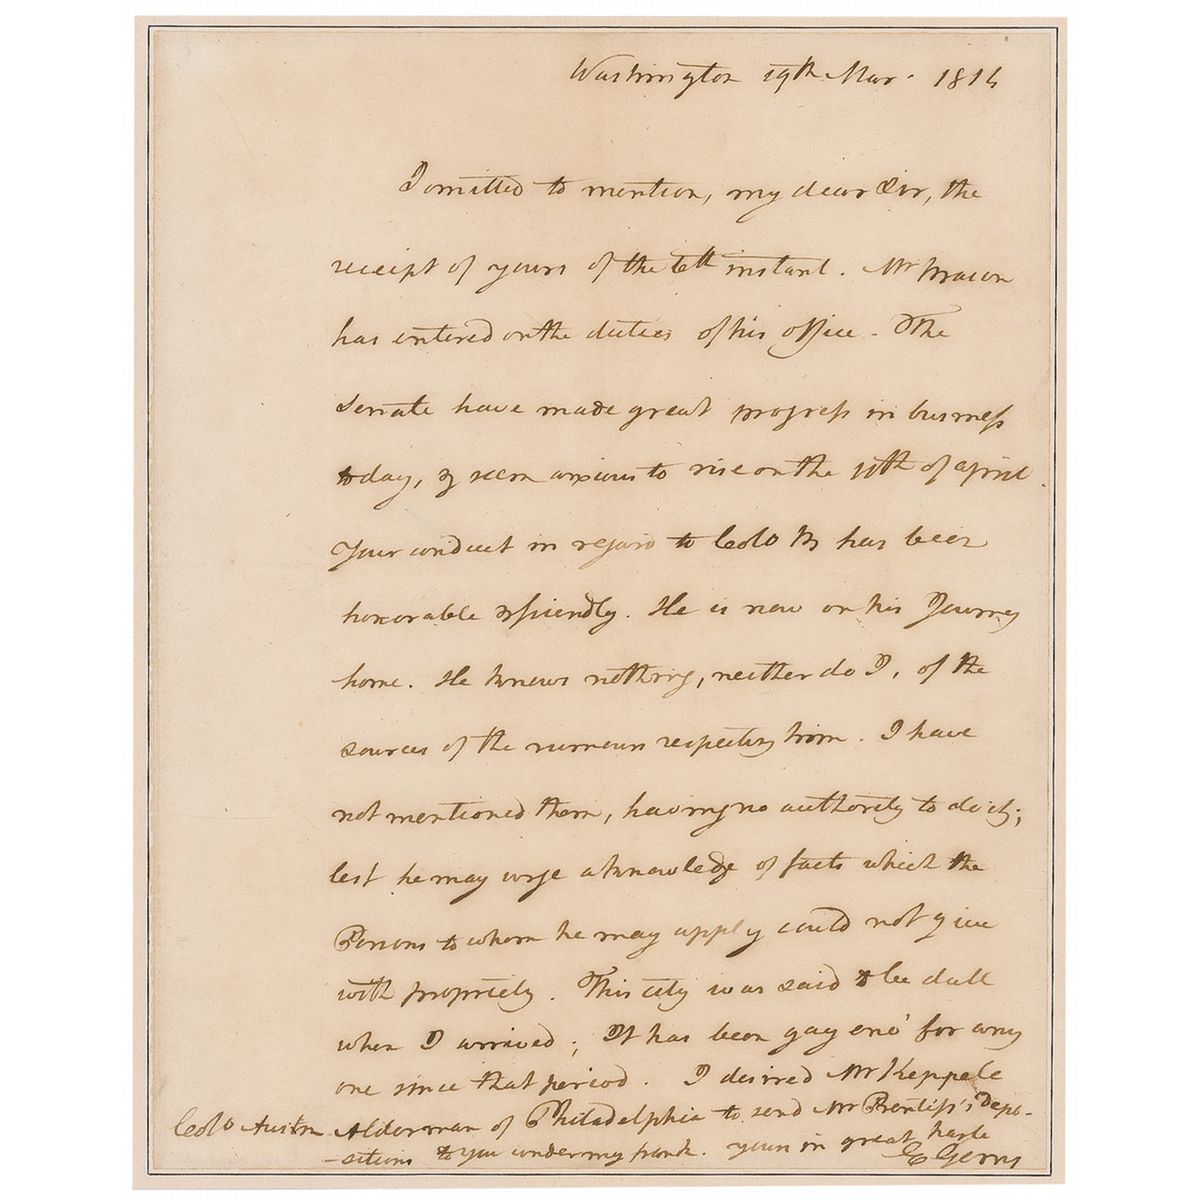 Washington 19th Mar. 1814
I omitted to mention, my dear Sir, the
receipt of yours of the 6th instant. Mr Mason
has entered on the duties of his office. The
Senate have made great progress in business
to day, & seem anxious to rise on the 11th of april.
Your conduct in regard to Colo M has been
honorable & friendly. He is now on his Journey
home. He knows nothing, neither do I, of the
sources of the rumours respecting him. I have
not mentioned them, having no authority to do it;
lest he may urge a knowledge of facts which the
Persons to whom he may apply could not give
with propriety. This city was said to be dull
when I arrived; It has been gay eno' for any
one since that period. I desired Mr Keppele
Alderman of Philadelphia to send Mr Prentiss's Depo-
-sitions to you under my frank. yours in great haste
E Gerry
Colo Austin